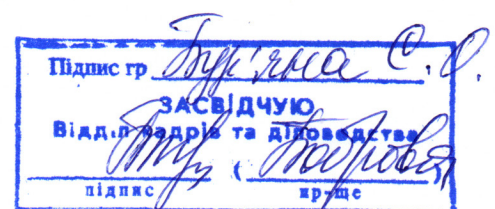 Підпис гр Бур'яна С. О.
ЗАСВІДЧУЮ
Відділ кадрів та діловодства
( Бобрової )
підпис пр-ще